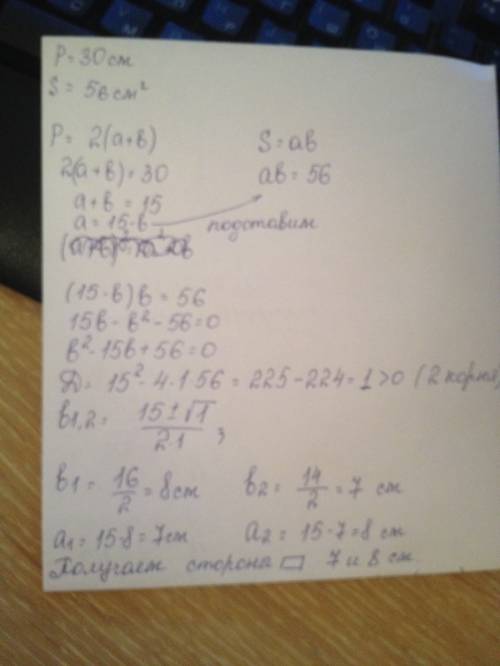 P = 30 см
S = 56 см²
P = 2(a+b) S = ab
2(a+b) = 30 ab = 56
a+b = 15
a = 15-b подставим
(15-b)b = 56
15b - b² - 56 = 0
b² - 15b + 56 = 0
Д = 15² - 4·1·56 = 225 - 224 = 1 > 0 (2 корня)
b1,2 = 15 ± √1 / 2·1 ;
b1 = 16/2 = 8 см b2 = 14/2 = 7 см
a1 = 15-8 = 7 см a2 = 15-7 = 8 см
Получаем сторона ▭ 7 и 8 см